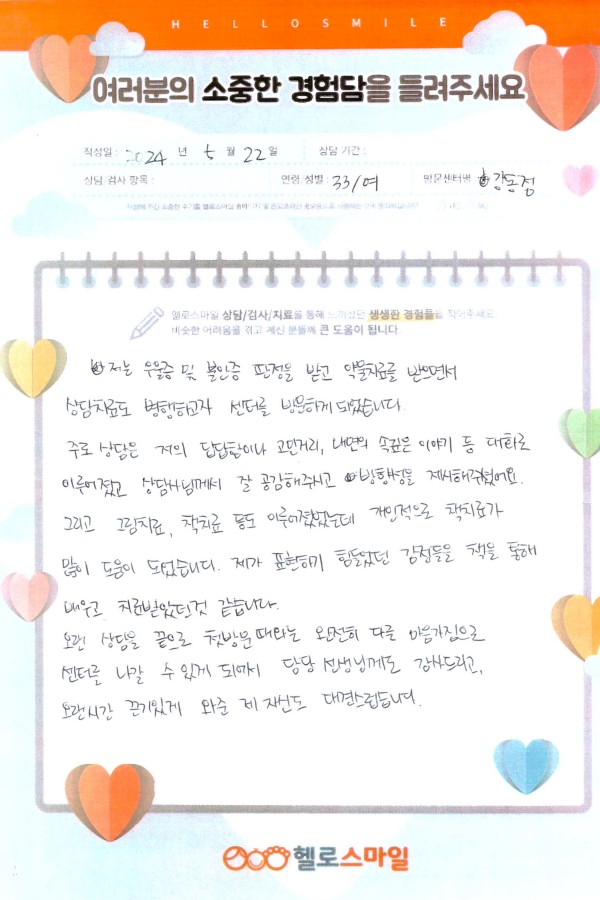 HELLOSMILE
여러분의 소중한 경험담을 들려주세요
작성일 : 2024 년 5 월 22 일 상담 기간 :
상담·검사 항목 : 연령·성별 : 33/여 방문센터명 강동점
헬로스마일 상담/검사/치료를 통해 느끼셨던 생생한 경험들을 적어주세요.
비슷한 어려움을 겪고 계신 분들께 큰 도움이 됩니다.
저는 우울증 및 불안증 판정을 받고 약물치료를 받으면서
상담치료도 병행하고자 센터를 방문하게 되었습니다.
주로 상담은 저의 답답함이나 고민거리, 내면의 속깊은 이야기 등 대화로
이루어졌고 상담사님께서 잘 공감해주시고 방향성을 제시해주셨어요.
그리고 그림치료, 책치료 등도 이루어졌었는데 개인적으로 책치료가
많이 도움이 되었습니다. 제가 표현하기 힘들었던 감정들을 책을 통해
배우고 치료받았던것 같습니다.
오랜 상담을 끝으로 첫방문때와는 완전히 다른 마음가짐으로
센터를 나갈 수 있게 되어서 담당 선생님께도 감사드리고,
오랜시간 끈기있게 와준 제 자신도 대견스럽습니다.
헬로스마일